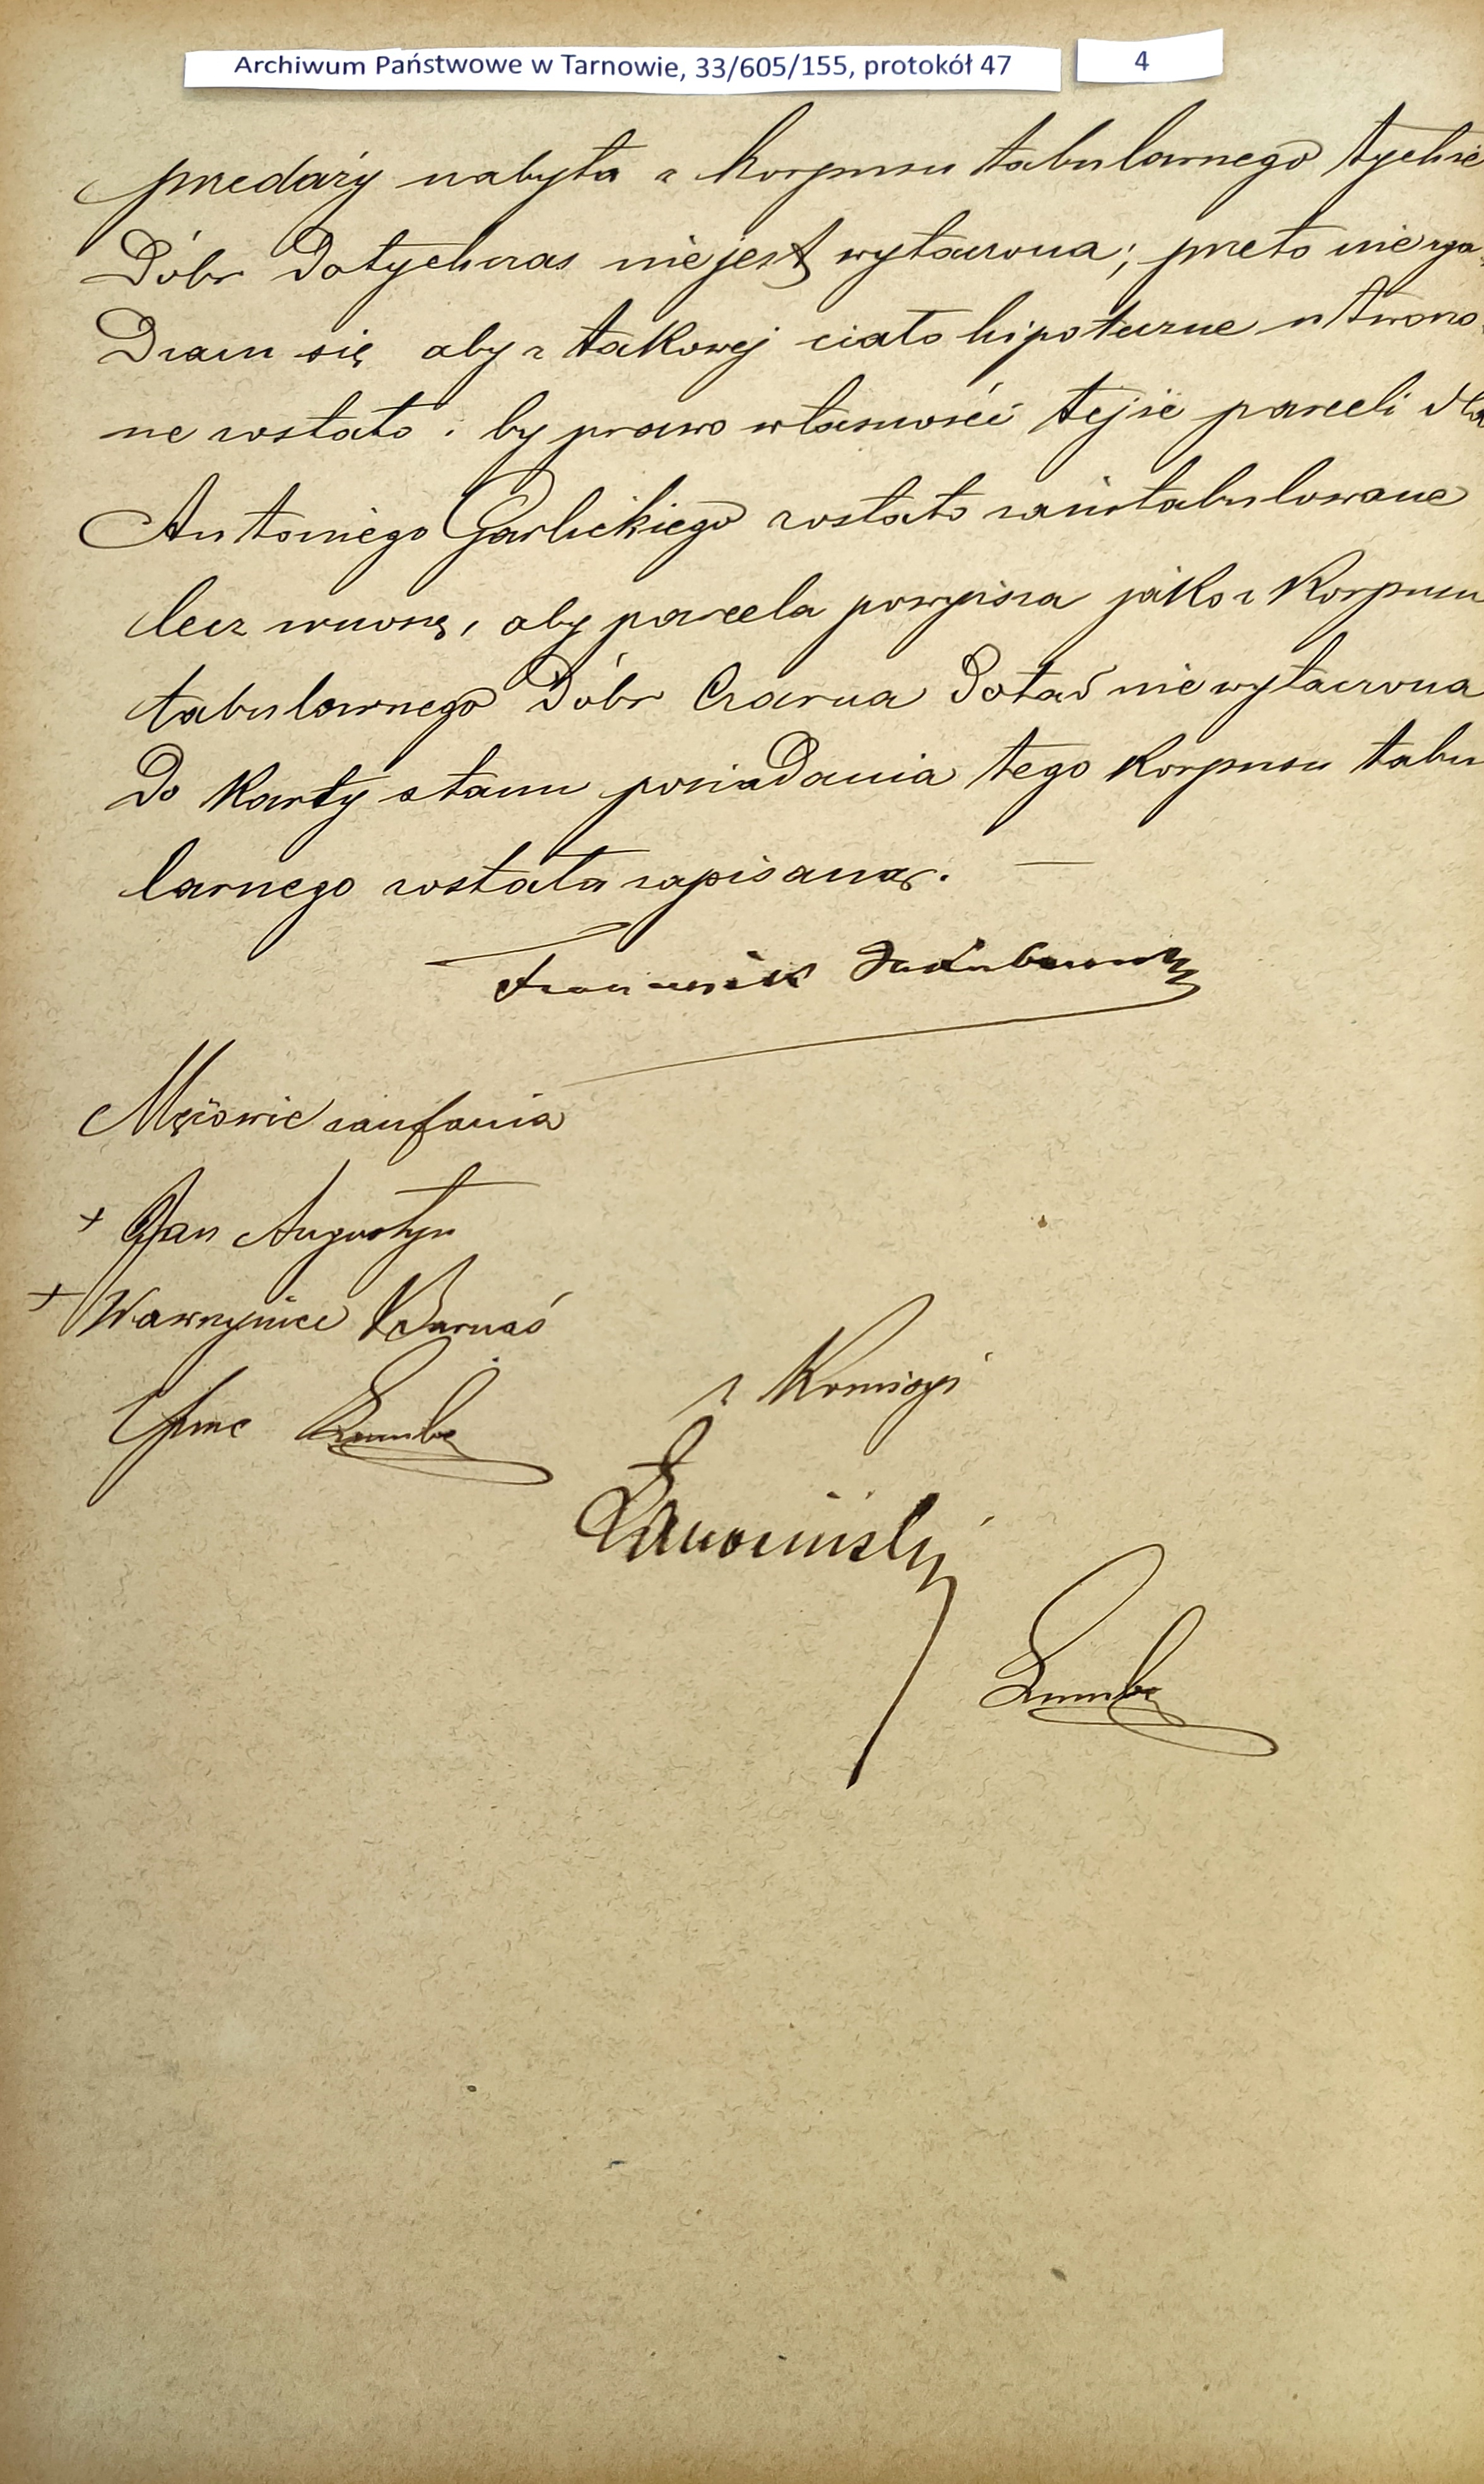 Archiwum Państwowe w Tarnowie, 33/605/155, protokół 47
4
przedaży nabyta z korpusu tabularnego tychże
Dóbr dotychczas nie jest wyłączona; przeto nie zga-
dzam się aby z takowej ciało hipoteczne utworzo-
ne zostało i by prawo własności tejże parceli dla
Antoniego Garlickiego zostało zaintabulowane
lecz wnoszę, aby parcela powyższa jako z korpusu
tabularnego Dóbr Czarna dotąd nie wyłączona
do karty stanu posiadania tego korpusu tabu
larnego została zapisaną.
Franciszek Jakubowski
Mężowie zaufania
+ Jan Augustyn
+ Wawrzyniec Barnaś
z Komisyi